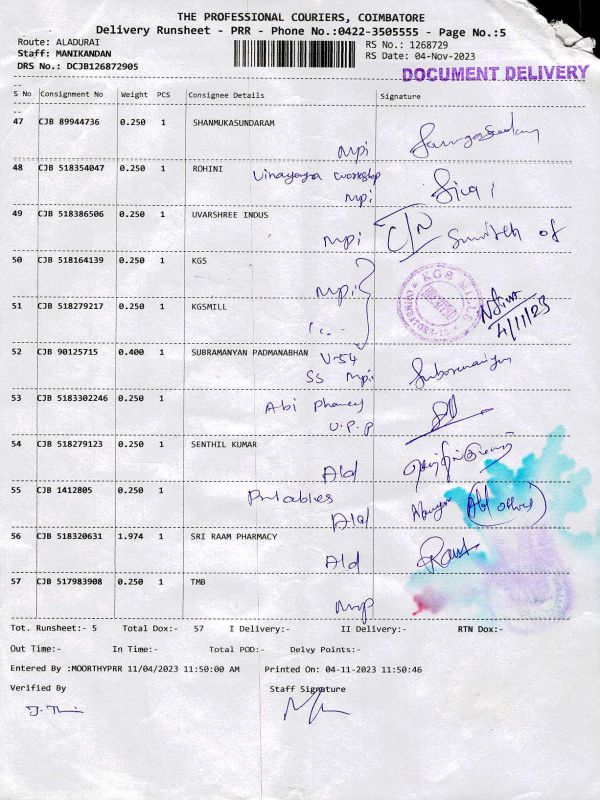 THE PROFESSIONAL COURIERS, COIMBATORE
Delivery Runsheet - PRR - Phone No.:0422-3505555 - Page No.:5
Route: ALADURAI
RS No.: 1268729
Staff: MANIKANDAN
RS Date: 04-Nov-2023
DRS No.: DCJB126872905
DOCUMENT DELIVERY
S No Consignment No Weight PCS Consignee Details Signature
47 CJB 89944736 0.250 1 SHANMUKASUNDARAM
mpi
48 CJB 518354047 0.250 1 ROHINI
Vinayaga workshop
mpi Siva
49 CJB 518386506 0.250 1 UVARSHREE INDUS
mpi C/N Switch of
50 CJB 518164139 0.250 1 KGS
mpi
KGS MILLS
51 CJB 518279217 0.250 1 KGSMILL
4/11/23
52 CJB 90125715 0.400 1 SUBRAMANYAN PADMANABHAN
V-54
SS mpi Subramaniyan
53 CJB 5183302246 0.250 1
Abi Phamcy
U.P.P
54 CJB 518279123 0.250 1 SENTHIL KUMAR
Ald
55 CJB 1412805 0.250 1
Printables
Ald
56 CJB 518320631 1.974 1 SRI RAAM PHARMACY
Ald
57 CJB 517983908 0.250 1 TMB
mp
Tot. Runsheet:- 5 Total Dox:- 57 I Delivery:- II Delivery:- RTN Dox:-
Out Time:- In Time:- Total POD:- Delvy Points:-
Entered By :MOORTHYPRR 11/04/2023 11:50:00 AM Printed On: 04-11-2023 11:50:46
Verified By Staff Signature